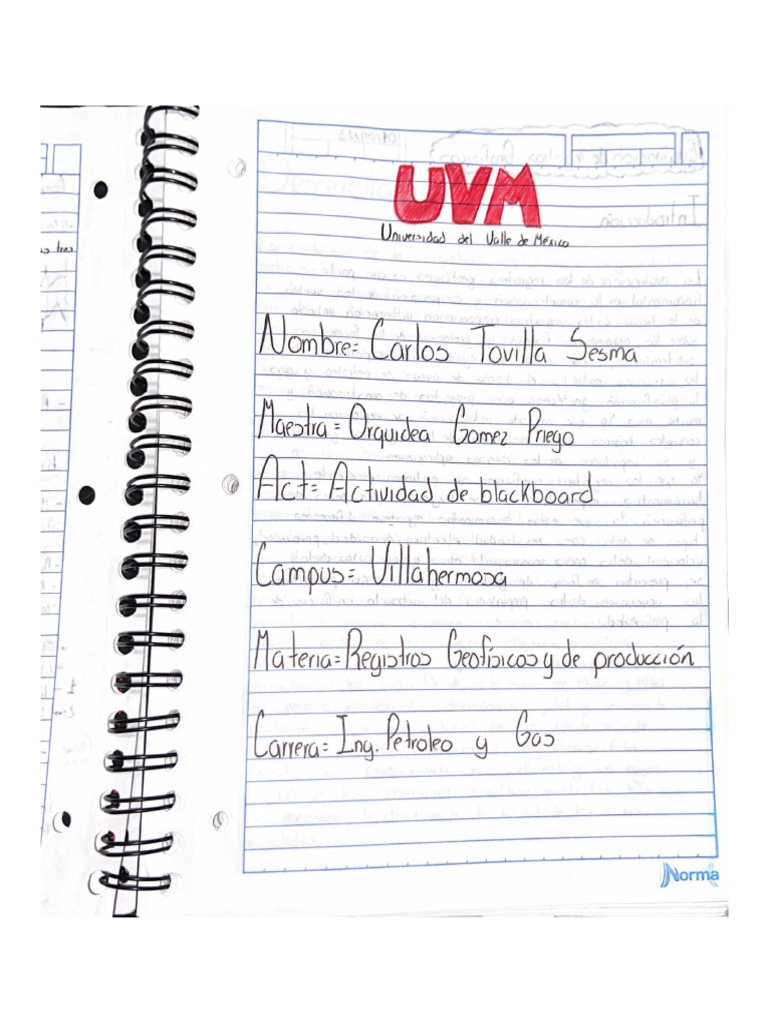 UVM
Universidad del Valle de México
Nombre= Carlos Tovilla Sesma
Maestra= Orquidea Gomez Priego
Act= Actividad de blackboard
Campus= Villahermosa
Materia= Registros Geofísicos y de producción
Carrera= Ing. Petroleo y Gas
Norma